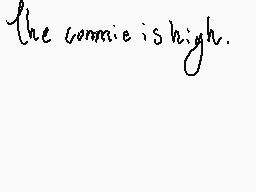 The commie is high.